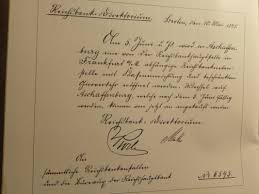 Reichsbank-Direktorium.
Berlin, den 10. Mai 1895.
Am 3. Juni d. Js. wird in Aschaffen-
burg eine von der Reichsbankhauptstelle in
Frankfurt a/M. abhängige Reichsbankneben-
stelle mit Kasseneinrichtung und beschränktem
Giroverkehr eröffnet werden. Wechsel auf
Aschaffenburg, welche nach dem 3. Juni fällig
werden, können von jetzt an angekauft werden.
Reichsbank-Direktorium.
Koch
An
sämmtliche Reichsbankanstalten
und die Bureaus der Reichshauptbank